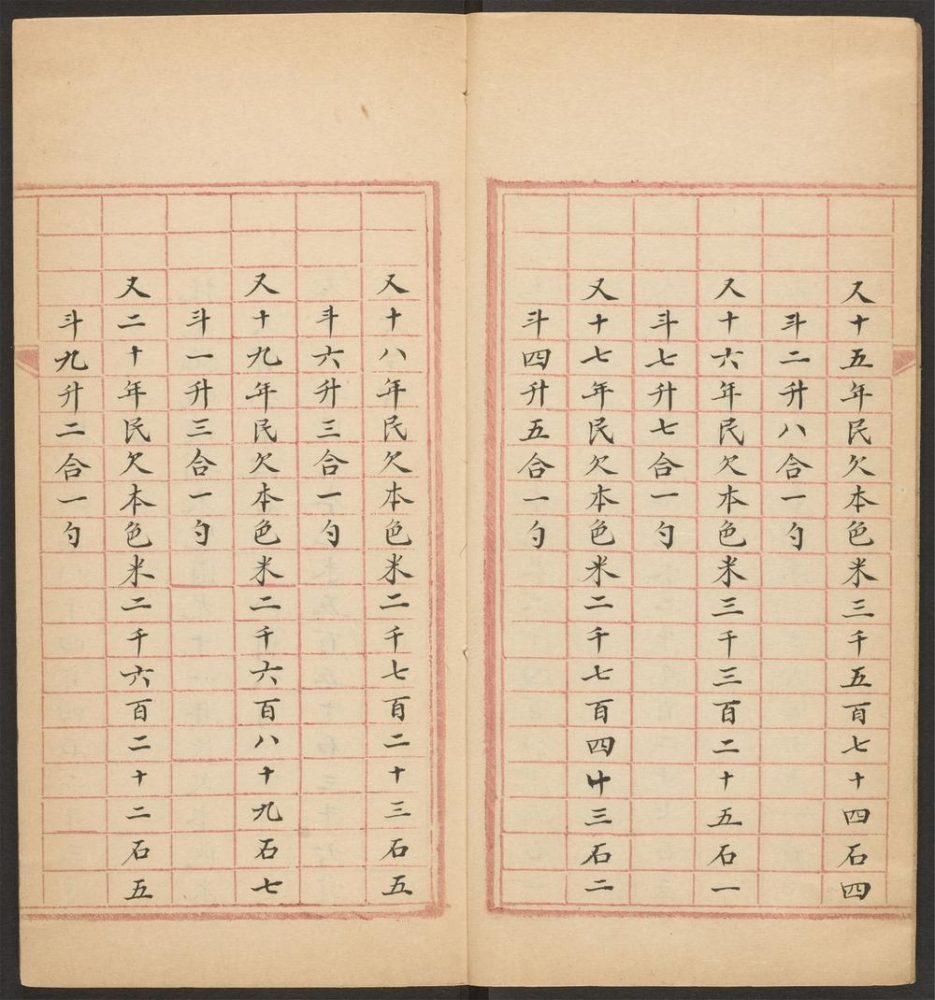 又十五年民欠本色米三千五百七十四石四
斗二升八合一勺
又十六年民欠本色米三千三百二十五石一
斗七升七合一勺
又十七年民欠本色米二千七百四十三石二
斗四升五合一勺
又十八年民欠本色米二千七百二十三石五
斗六升三合一勺
又十九年民欠本色米二千六百八十九石七
斗一升三合一勺
又二十年民欠本色米二千六百二十二石五
斗九升二合一勺